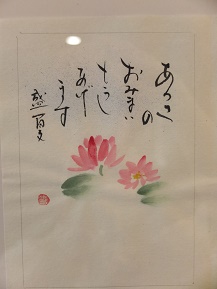 あつさ
の
おみまい
もうし
あげ
ます
盛夏